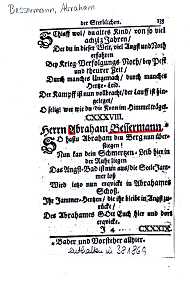 Bessermann, Abraham
der Sterblichen. 135
Schlaff wol/ du altes Kind/ von so viel
achtzig Jahren/
Der du in dieser Welt, viel Angst und Noth
erfahren
Bey Krieg Verfolgungs Noth/ bey Pest
und theurer Zeit/
Durch manches Ungemach/ durch manches
Hertze-Leid.
Der Kampff ist nun vollbracht/ der Lauff ist hin-
gelegen/
O selig! wer wie du die Kron im Himmel trägt.
CXXXVIII.
Herrn Abraham Bessermann.*
So hast Abraham den Berg nun über-
stiegen!
Nun kan dein Schmertzen-Leib hier in
der Ruhe liegen
Das Angst-Bad ist nun aus/ die Seele
loß
Wird jetzo nun erquickt in Abrahames
Schoß.
Ihr Jammer-Hertzen/ die ihr bleibt in Angst zu-
rücke/
Des Abrahames GOtt Euch hier und dort
erquicke.
J 4 CXXXIX
* Bader und Vorsteher allhier.
enthalten in 381869